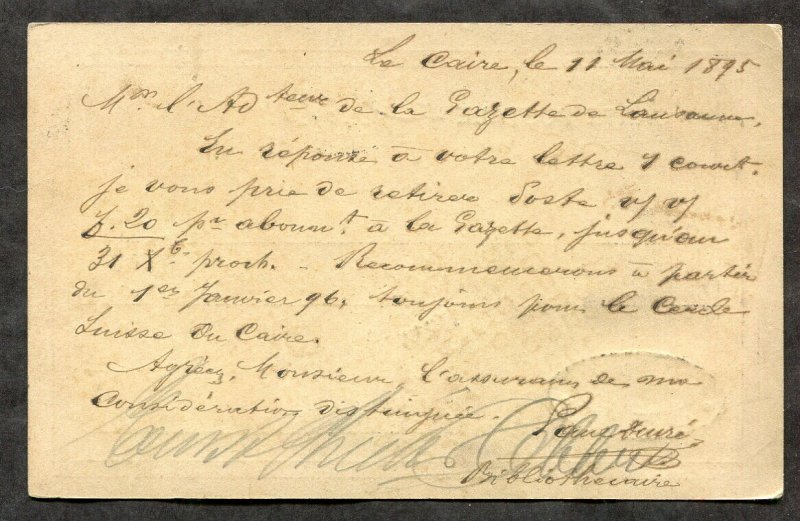 Le Caire, le 11 Mai 1895
Mr. l'Adteur de la Gazette de Lausanne,
En réponse à votre lettre 7 court.
je vous prie de retirer
f. 20 pr abonn.t à la Gazette, jusqu'au
31 Xb proch. - Recommencerons à partir
du 1er Janvier 96, toujours pour le Cercle
Suisse du Caire.
Agréez, Monsieur, l'assurance de ma
Considération distinguée.
Bibliothécaire